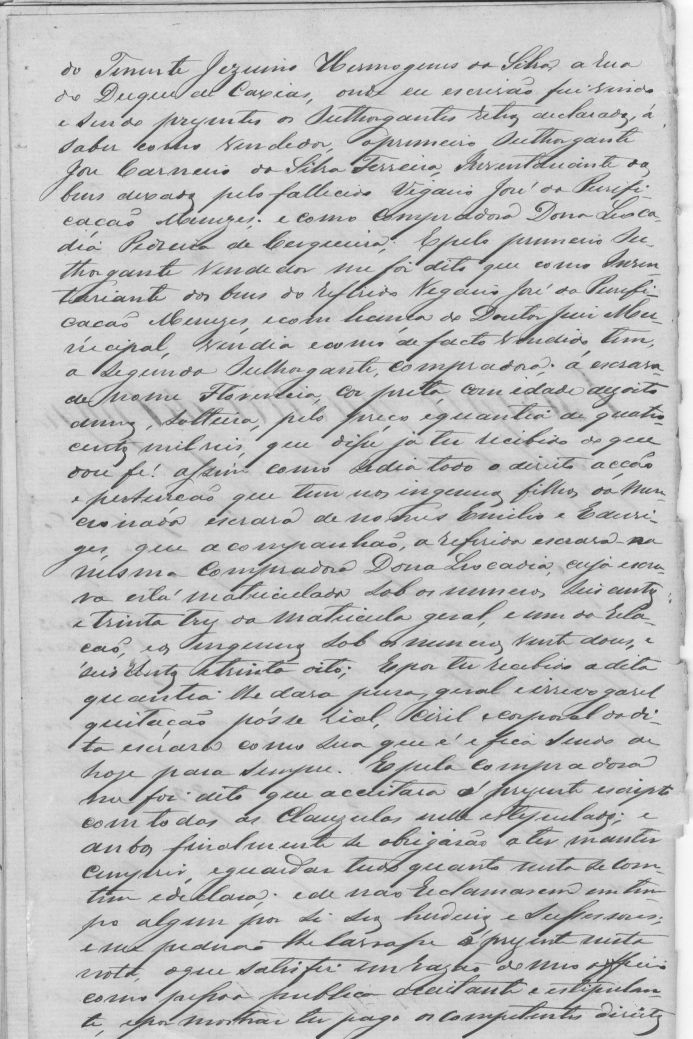 do Tenente Jezuino Hermogenes da Silva, a Rua
do Duque de Caxias, onde eu escrivão fui vindo
e sendo prezentes os Outhorgantes declarados, á
saber como vendedor, o primeiro Outhorgante
Jose Carneiro da Silva Ferreira, Inventariante dos
bens deixados pelo fallecido Vigario José da Purifi-
cacão Menezes; e como Compradora Dona Leoca-
dia Pedreira de Cerqueira; E pelo primeiro Ou-
thorgante vendedor me foi dito que como Inven-
tariante dos bens do referido Vigario José da Purifi-
cacão Menezes, e com licenca do Doutor Juiz Mu-
nicipal, vendia e como de facto vendido tem,
a Segunda Outhorgante, compradora á escrava
de nome Florencia, cor preta, com idade dezoito
annos, solteira, pelo preço e quantia de quatro
centos mil reis, que disse já ter recebido do que
dou fé: assim como cedia todo o direito acção
e pertencão que tem nos ingenuos filhos da men-
cionada escrava de nomes Emilio e Eduvi-
ges, que acompanhão, a referida escrava na
mesma Compradora Dona Leocadia, cuja escra-
va está matriculada sob os numeros seis centos
e trinta tres da matricula geral, e um da rela-
cão, e os ingenuos sob os numeros vinte dous, e
seis centos e trinta oito; E por ter recebido a dita
quantia lhe dava pura, geral e irrevogavel
quitacão pósse rial, civil e corporal da di-
ta escrava como sua que é e fica sendo de
hoje para sempre. E pela compradora
me foi dito que acceitava o prezente escripto
com todas as Clauzulas nelle estipuladas; e
ambos finalmente se obrigárão a ter manter
cumprir, e guardar tudo quanto nesta se con-
tem e declara; e de não reclamarem em tem-
po algum por si seus herdeiros e sussessores;
e me pedirão lhe lavrasse o prezente nesta
nota, o que satisfiz em razão de meu officio
como pessoa publica acceitante e estipulan-
te, e por mostrar ter pago os competentes direitos